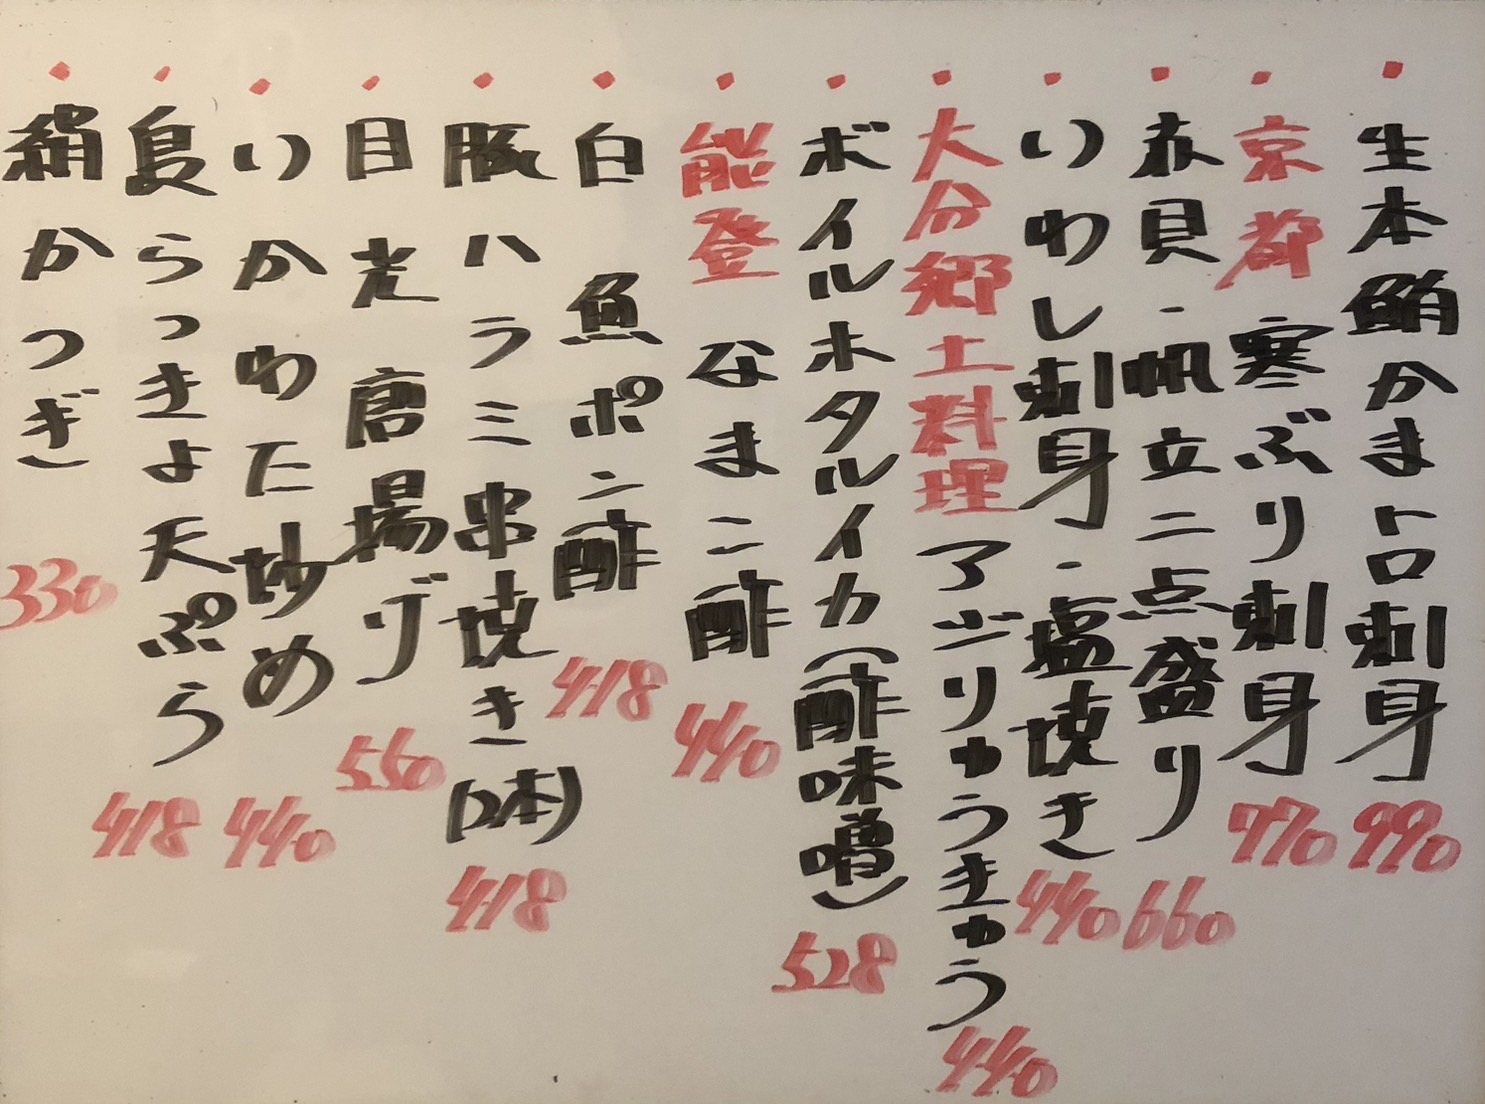 ・生本鮪かまトロ刺身 990
・京都 寒ぶり刺身 770
・赤貝・帆立二点盛り 660
・いわし刺身・塩焼き 440
・大分郷土料理 アジりゅうきゅう 440
・ボイルホタルイカ(酢味噌) 528
・能登 なまこ酢 440
・白魚ポン酢 418
・豚ハラミ串焼き(2本) 418
・目光唐揚げ 550
・いかわた炒め 440
・島らっきょ天ぷら 418
・絹かつぎ 330